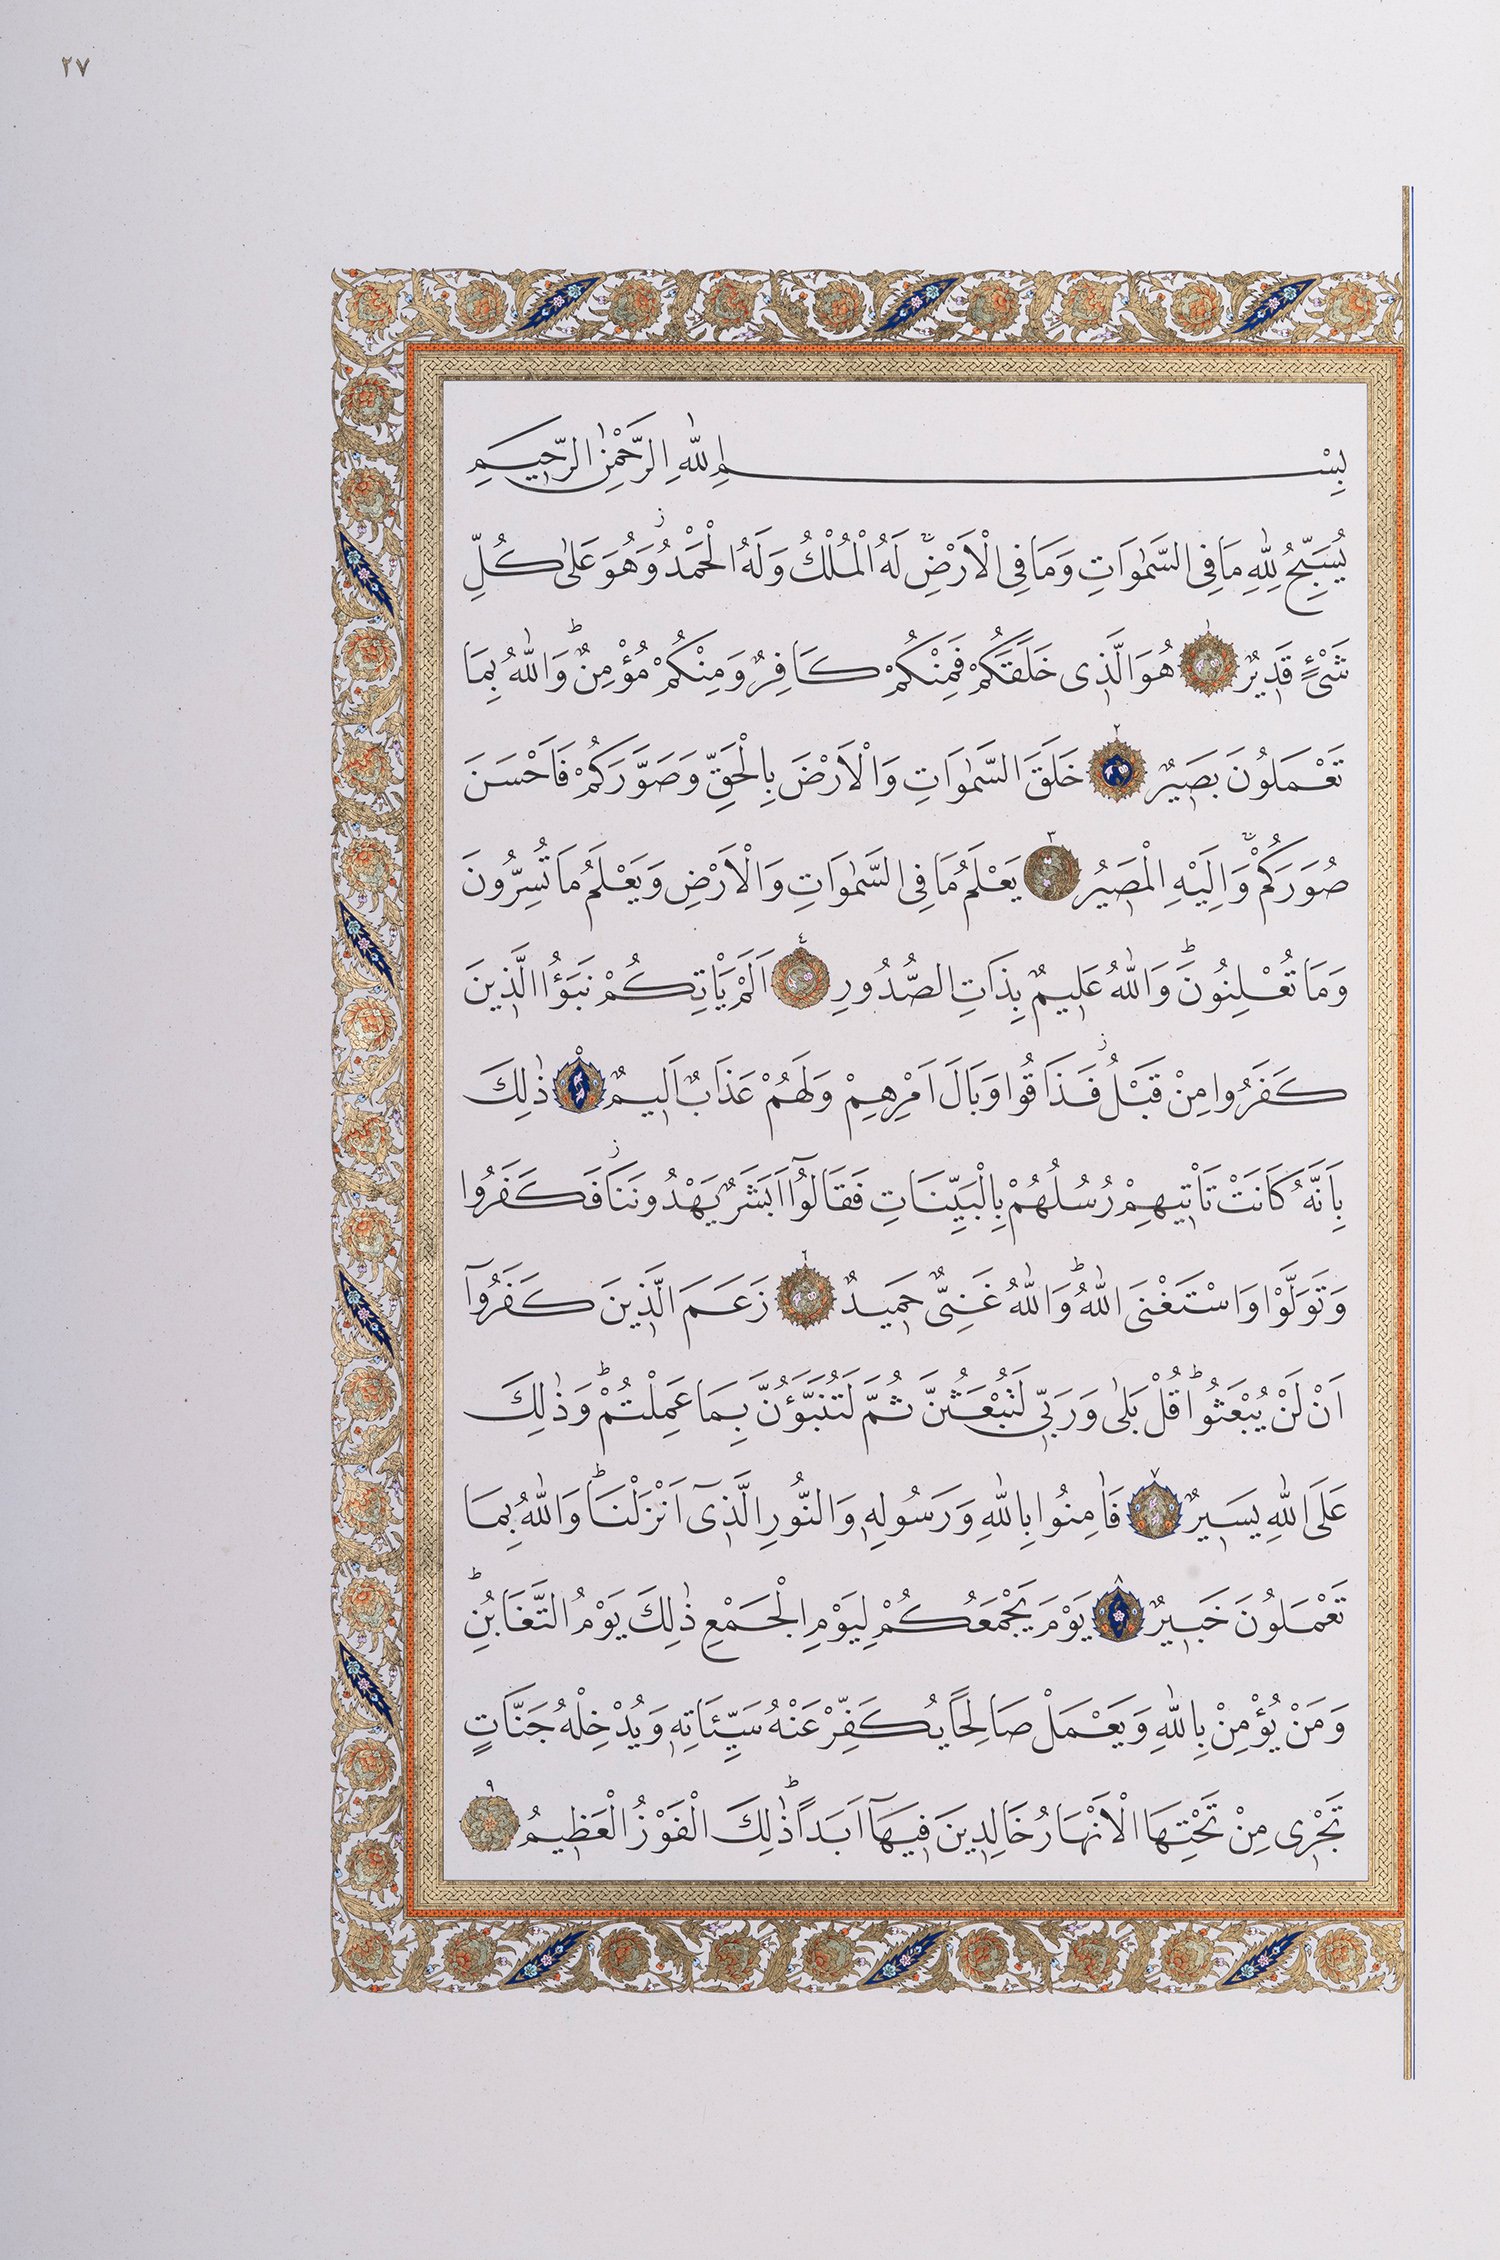 ٢٧
بِسْمِ اللّٰهِ الرَّحْمٰنِ الرَّحِيمِ
يُسَبِّحُ لِلّٰهِ مَا فِى السَّمٰوَاتِ وَمَا فِى الْاَرْضِۚ لَهُ الْمُلْكُ وَلَهُ الْحَمْدُۘ وَهُوَ عَلٰى كُلِّ
شَىْءٍ قَدِيرٌ ١ هُوَ الَّذِى خَلَقَكُمْ فَمِنْكُمْ كَافِرٌ وَمِنْكُمْ مُؤْمِنٌۜ وَاللّٰهُ بِمَا
تَعْمَلُونَ بَصِيرٌ ٢ خَلَقَ السَّمٰوَاتِ وَالْاَرْضَ بِالْحَقِّ وَصَوَّرَكُمْ فَاَحْسَنَ
صُوَرَكُمْۚ وَاِلَيْهِ الْمَصِيرُ ٣ يَعْلَمُ مَا فِى السَّمٰوَاتِ وَالْاَرْضِ وَيَعْلَمُ مَا تُسِرُّونَ
وَمَا تُعْلِنُونَۜ وَاللّٰهُ عَلِيمٌ بِذَاتِ الصُّدُورِ ٤ اَلَمْ يَاْتِكُمْ نَبَؤُا الَّذِينَ
كَفَرُوا مِنْ قَبْلُۘ فَذَاقُوا وَبَالَ اَمْرِهِمْ وَلَهُمْ عَذَابٌ اَلِيمٌ ٥ ذٰلِكَ
بِاَنَّهُ كَانَتْ تَاْتِيهِمْ رُسُلُهُمْ بِالْبَيِّنَاتِ فَقَالُوٓا اَبَشَرٌ يَهْدُونَنَاۘ فَكَفَرُوا
وَتَوَلَّوْا وَاسْتَغْنَى اللّٰهُۜ وَاللّٰهُ غَنِىٌّ حَمِيدٌ ٦ زَعَمَ الَّذِينَ كَفَرُوٓا
اَنْ لَنْ يُبْعَثُواۜ قُلْ بَلٰى وَرَبِّى لَتُبْعَثُنَّ ثُمَّ لَتُنَبَّؤُنَّ بِمَا عَمِلْتُمْۜ وَذٰلِكَ
عَلَى اللّٰهِ يَسِيرٌ ٧ فَاٰمِنُوا بِاللّٰهِ وَرَسُولِهِ وَالنُّورِ الَّذِىٓ اَنْزَلْنَاۜ وَاللّٰهُ بِمَا
تَعْمَلُونَ خَبِيرٌ ٨ يَوْمَ يَجْمَعُكُمْ لِيَوْمِ الْجَمْعِ ذٰلِكَ يَوْمُ التَّغَابُنِۜ
وَمَنْ يُؤْمِنْ بِاللّٰهِ وَيَعْمَلْ صَالِحًا يُكَفِّرْ عَنْهُ سَيِّئَاتِهِ وَيُدْخِلْهُ جَنَّاتٍ
تَجْرِى مِنْ تَحْتِهَا الْاَنْهَارُ خَالِدِينَ فِيهَآ اَبَدًاۜ ذٰلِكَ الْفَوْزُ الْعَظِيمُ ٩